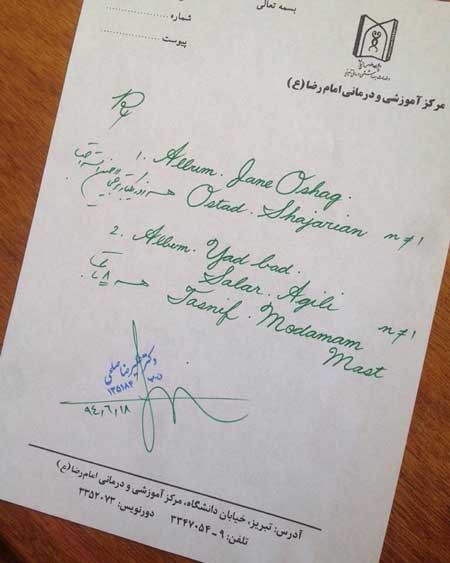 بسمه تعالی
شماره
پیوست
مرکز آموزشی و درمانی امام رضا (ع)
1. Album. Jane Oshag.
Ostad. Shajarian n≠1
2. Album. Yad bad.
Salar. Agili n≠1
Tasnif. Modamam
Mast
دکتر علیرضا
۱۳۵۱۸۴
۹۴,۶,۱۸
آدرس: تبریز، خیابان دانشگاه، مرکز آموزشی و درمانی امام رضا (ع)
تلفن: ۹ - ۳۳۴۷۰۵۴ دورنویس: ۳۳۵۲۰۷۳